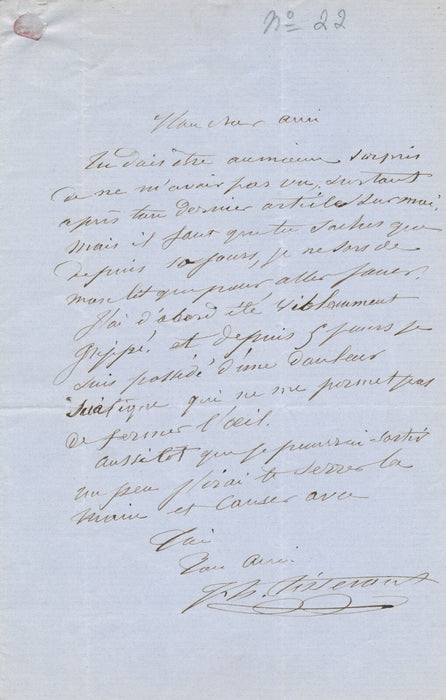 No 22
Mon cher ami
Tu dois être au mieux surpris
de ne m'avoir pas vu, surtout
après ton dernier article sur moi,
mais il faut que tu saches que
depuis 10 jours, je ne sors de
mon lit que pour aller jouer.
J'ai d'abord été violemment
grippé, et depuis 5 jours je
suis possédé d'une douleur
sciatique qui ne me permet pas
de fermer l'œil.
aussitot que je pourrai sortir
un peu j'irai te serrer la
main et causer avec
toi
Ton ami